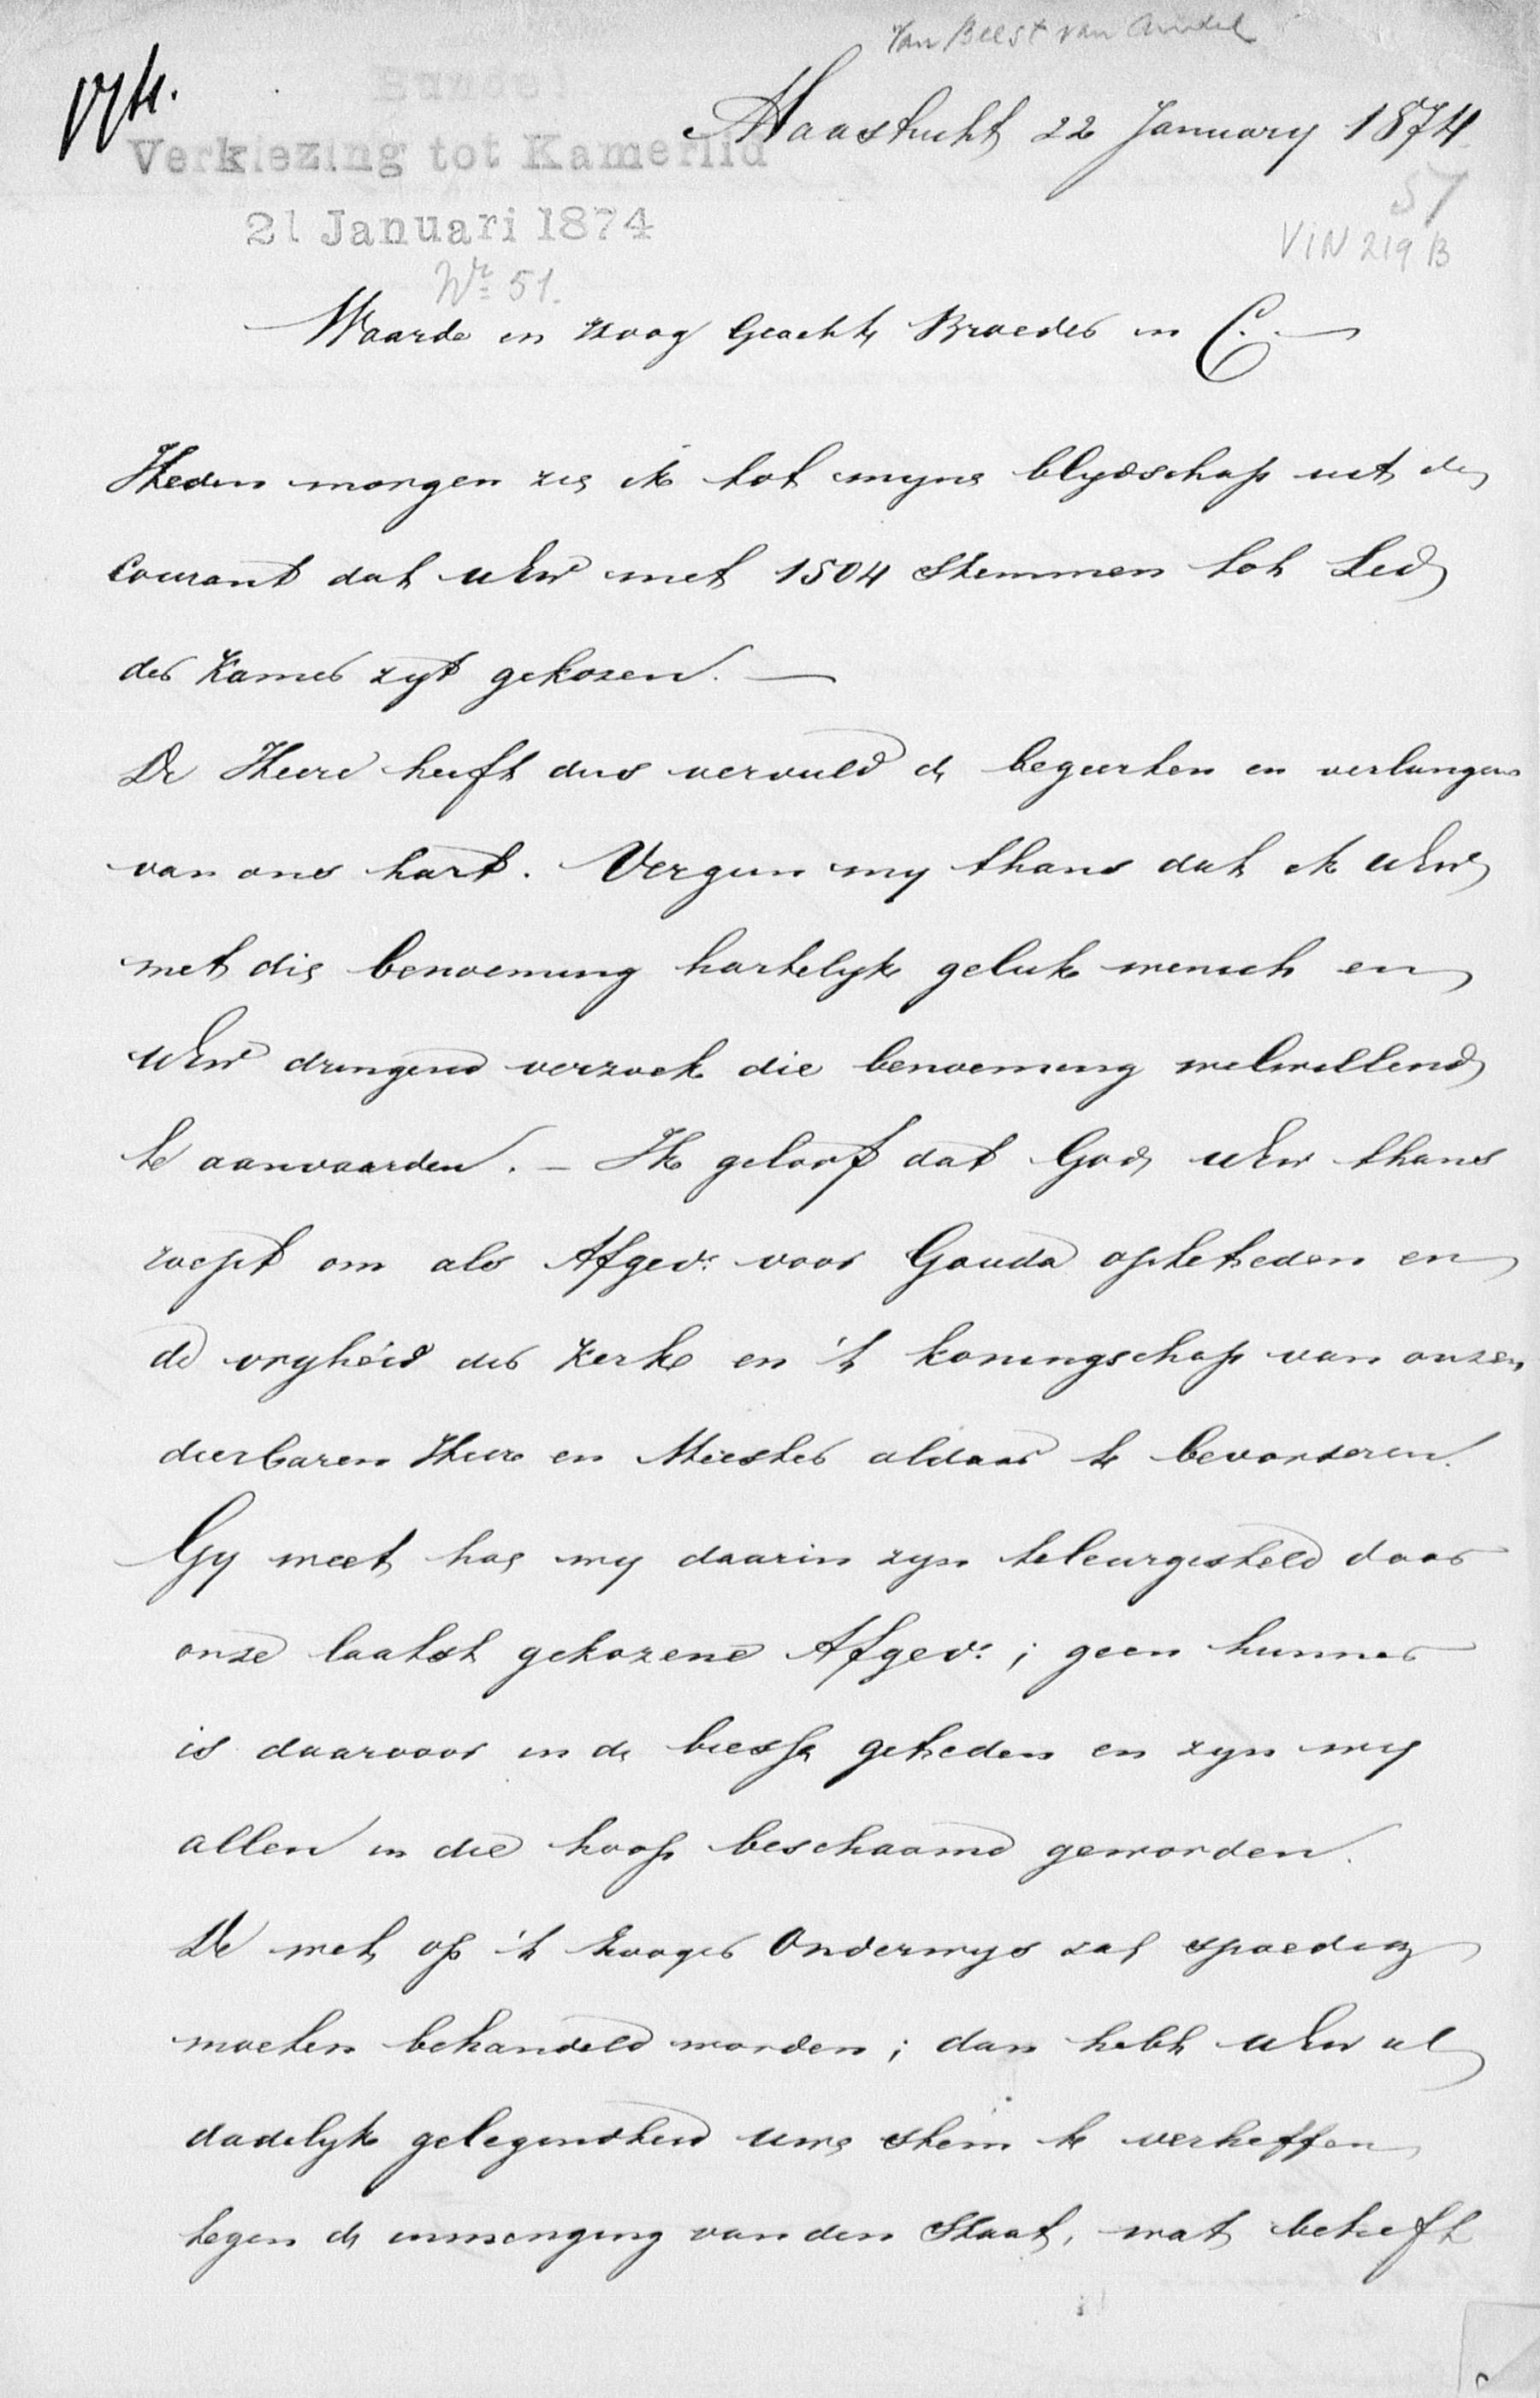 Van Beest van Andel
Bundel
Maastricht 22 January 1874
Verkiezing tot Kamerlid
21 Januari 1874
57
VIN 219 B
Nr 51.
Waarde en Hoog Geachte Broeder in C.
Heden morgen zie ik tot myne blydschap uit de
Courant dat UEw met 1504 Stemmen tot Lid
der Kamer zyt gekozen. —
De Heere heeft dus vervuld de begeerten en verlangens
van ons hart. Vergun my thans dat ik UEw
met die benoeming hartelyk geluk wensch en
UEw dringend verzoek die benoeming welwillend
te aanvaarden. — Ik geloof dat God UEw thans
roept om als Afgev: voor Gouda optetreden en
de vryheid der Kerk en 't koningschap van onzen
dierbaren Heere en Meester aldaar te bevorderen.
Gy weet hoe wy daarin zyn teleurgesteld door
onze laatst gekozene Afgev:; geen hunner
is daarvoor in de bresse getreden en zyn wy
allen in die hoop beschaamd geworden.
De wet op 't hooger Onderwys zal spoedig
moeten behandeld worden; dan hebt UEw al
dadelyk gelegendheid uwe stem te verheffen
tegen de inmenging van den Staat, wat betreft